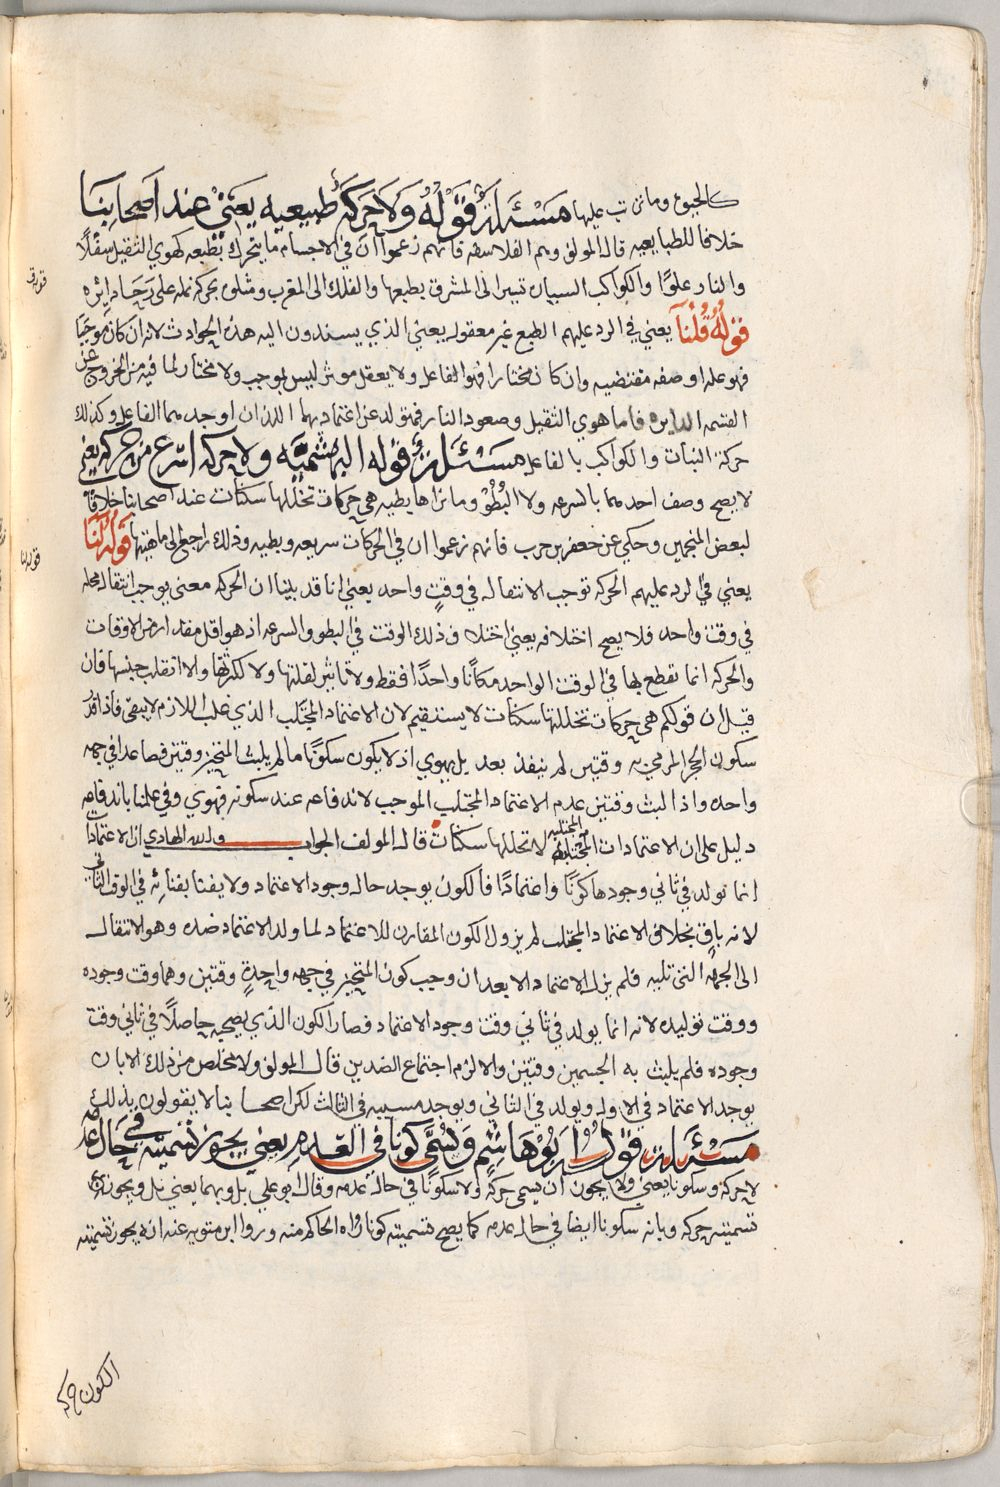 كالجوع وما ترتب عليها مسئلة قوله ولا حركة طبيعيه يعني عند اصحابنا
خلافا للطبايعيه قال المولف وهم الفلاسفه فانهم زعموا ان في الاجسام ما يتحرك بطبعه كهوي الثقيل سفلًا
والنار علوًا والكواكب السياره تسير الى المشرق بطبعها والفلك الى المغرب ومثلوه بحركة نمله على رحا دايره
قوله قلنا يعني في الرد عليهم الطبع غير معقول يعني الذي يسندون اليه هذه الحوادث لانه ان كان موجبًا
فهو عله او صفه مقتضيه وان كان مختارا فهو الفاعل ولا يعقل موثر ليس بموجب ولا مختار لما فيه من الخروج عن
القسمه الدايره فاما هوي الثقيل وصعود النار فمتولد عن اعتماد بهما اللذان اوجدهما الفاعل وكذلك
حركة النبات والكواكب بالفاعل مسئلة قوله البهشميه ولا حركه اسرع من حركه يعني
لا يصح وصف احدهما بالسرعه ولا البطؤ وما نراها بطيه هي حركات تخللها سكنات عند اصحابنا خلافا
لبعض المنجمين وحكي عن جعفر بن حرب فانهم زعموا ان في الحركات سريعه وبطيه وذلك راجع الى ماهيتها قوله لنا
يعني في الرد عليهم الحركه توجب الانتقال في وقتٍ واحد يعني انا قد بينا ان الحركه معنى يوجب انتقال محله
في وقت واحد فلا يصح اختلافه يعني اختلاف ذلك الوقت في البطو والسرعه اذ هو اقل مقدار من الاوقات
والحركه انما يقطع بها في الوقت الواحد مكانًا واحدًا فقط ولا تاثير لقلتها ولا لكثرتها والا انقلب جنسها فان
قيل ان قولكم هي حركات تخللها سكنات لا يستقيم لان الاعتماد المجتلب الذي غلب اللازم لا يبقى فاذا قدر
سكون الحجر المرمي به وقتين لم ينفذ بعد بل يهوي اذ لا يكون سكونًا ما لم يلبث المتحيز وقتين فصاعدا في جهه
واحده واذا لبث وقتين عدم الاعتماد المجتلب الموجب لاندفاعه عند سكونه فهوي وفي علمنا باندفاعه
دليل على ان الاعتمادات المجتلبه لا تخللها سكنات قال المولف الجواب والله الهادي ان الاعتمادات
انما تولد في ثاني وجودها كونًا واعتمادًا فالكون يوجد حال وجود الاعتماد ولا يفنا بفنائه في الوقت الثاني
لانه باقٍ بخلاف الاعتماد المجتلب لم يزول الكون المقارن للاعتماد لما ولد الاعتماد ضده وهو الانتقال
الى الجهه التي تليه فلم يزل الاعتماد الا بعد ان وجب كون المتحيز في جهه واحدةٍ وقتين وهما وقت وجوده
ووقت توليده لانه انما يولد في ثاني وقت وجود الاعتماد فصار الكون الذي يصحبه حاصلًا في ثاني وقت
وجوده فلم يلبث به الجسمين وقتين والا لزم اجتماع الضدين قال المولف ولا مخلص من ذلك الا بان
يوجد الاعتماد في الاول ويولد في الثاني ويوجد مسببه في الثالث لكن اصحابنا لا يقولون بذلك
مسئلة قوله ابو هاشم ويسمى كونا في العدم يعني يجوز تسميته في حال عدمه
لا حركه وسكونا يعني ولا يجوز ان يسمى حركه ولا سكونًا في حالة عدمه وقال ابو علي بل وبهما يعني بل ويجوز
تسميته حركه وبانه سكونا ايضا في حال عدمه كما يصح تسميته كونا رواه الحاكم منه وروا ابن متويه عنه انه يجوز تسميته
الكون